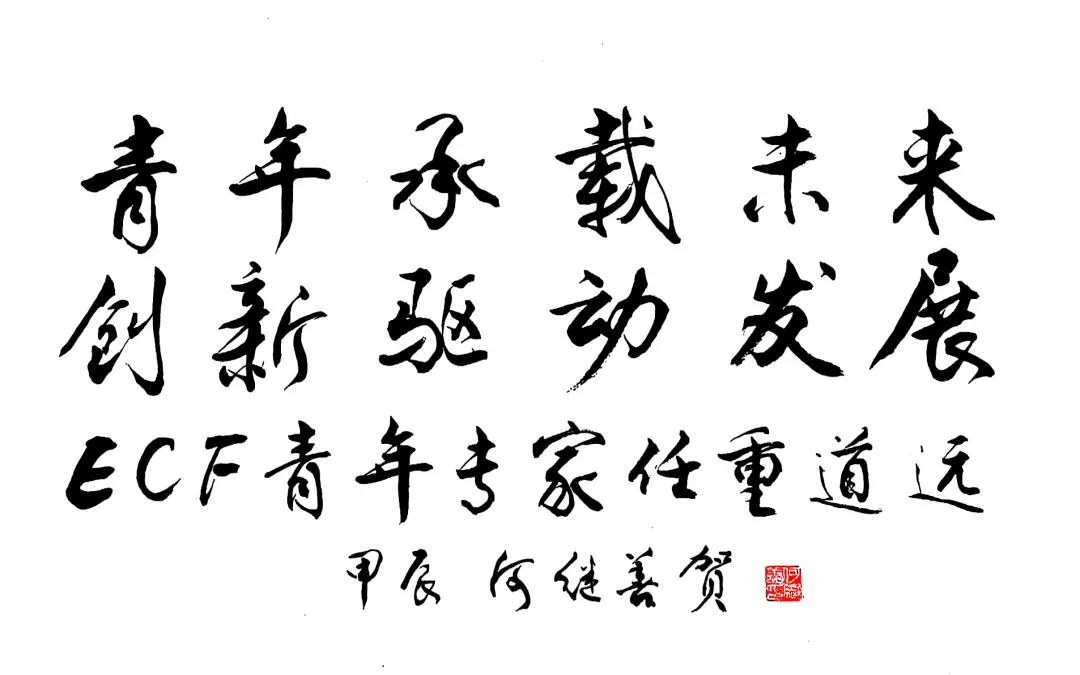 青年承载未来
创新驱动发展
ECF青年专家任重道远
甲辰 何继善贺